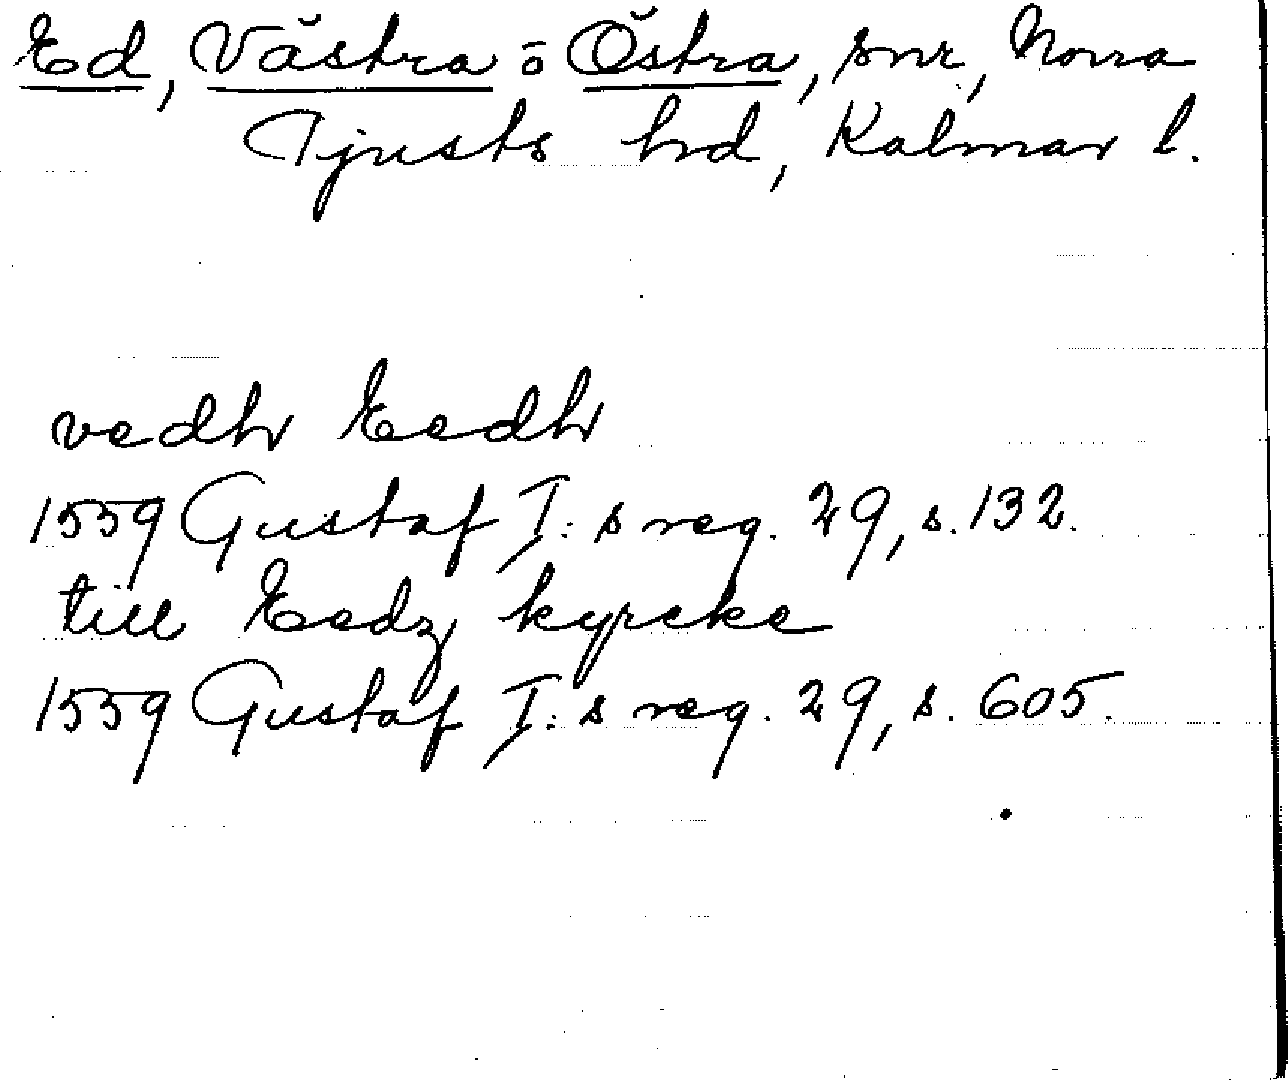 Ed, Västra o Östra, snr, Norra
Tjusts hrd, Kalmar l.
vedh Eedh
1559 Gustaf I:s reg. 29, s. 132.
till Eedz kyrcke
1559 Gustaf I:s reg. 29, s. 605.